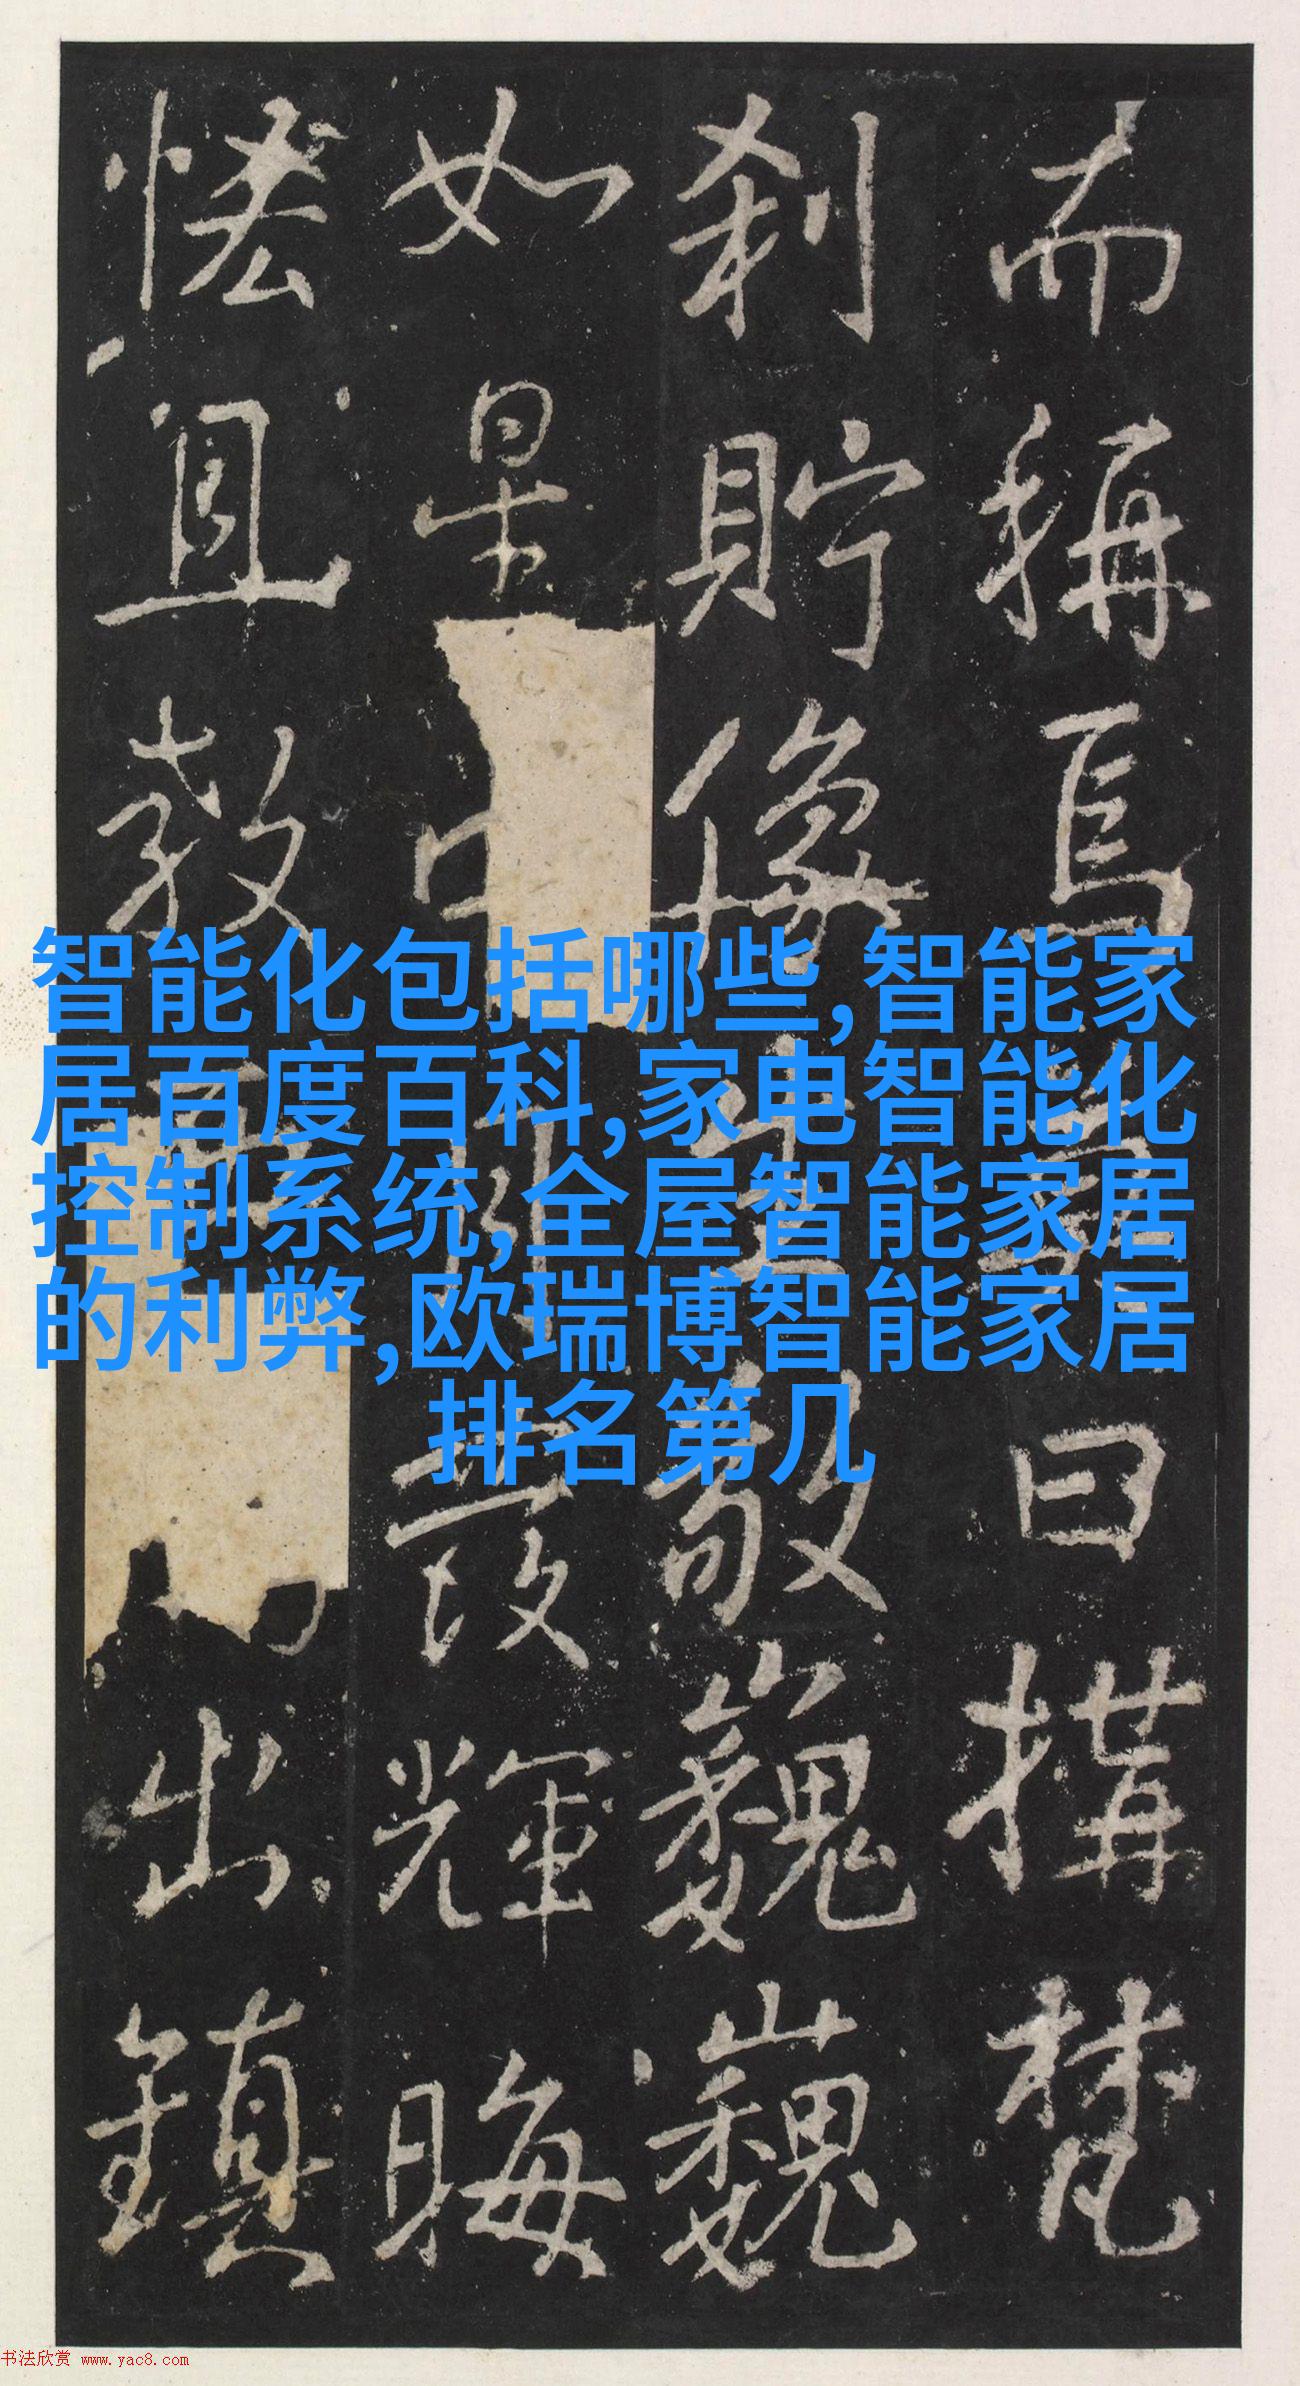 而稱焉曰搆梵
刹貯像敬巍巍
如發輝晦
教出鎮
智能化包括哪些,智能家
居百度百科,家电智能化
控制系统,全屋智能家居
的利弊,欧瑞博智能家居
排名第几
书法欣赏 www.yac8.com